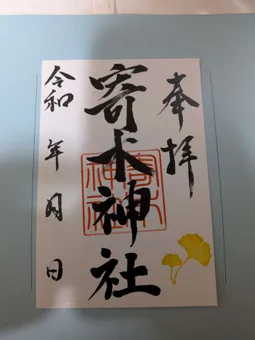 奉拝
寄木神社
寄木神社
令和 年 月 日